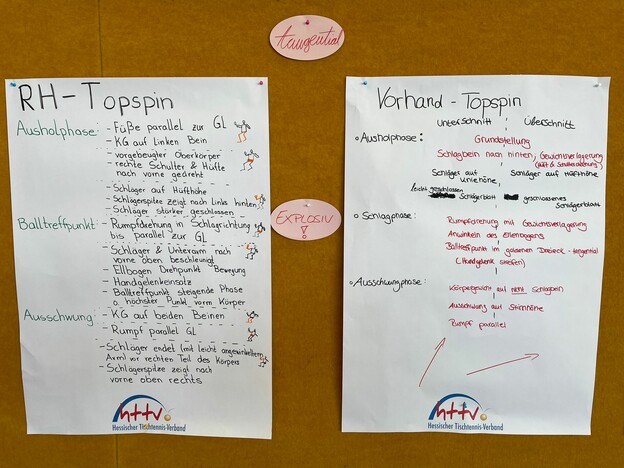 tangential
RH-Topspin
Ausholphase:
- Füße parallel zur GL
- KG auf linken Bein
- vorgebeugter Oberkörper
- rechte Schulter & Hüfte
nach vorne gedreht
- Schläger auf Hüfthöhe
- Schlägerspitze zeigt nach links hinten
- Schläger stärker geschlossen
Balltreffpunkt:
- Rumpfdrehung in Schlagrichtung
bis parallel zur GL
- Schläger & Unterarm nach
vorne oben beschleunigt
- Ellbogen Drehpunkt Bewegung
- Handgelenkeinsatz
- Balltreffpunkt steigende Phase
o. höchster Punkt vorm Körper
Ausschwung:
- KG auf beiden Beinen
- Rumpf parallel GL
- Schläger endet (mit leicht angewinkeltem
Arm) vor rechten Teil des Körpers
- Schlägerspitze zeigt nach
vorne oben rechts
httv
Hessischer Tischtennis-Verband
EXPLOSIV
!
Vorhand - Topspin
Unterschnitt Überschnitt
Ausholphase:
Grundstellung
Schlagbein nach hinten, Gewichtsverlagerung
Schläger auf
Kniehöhe
Schläger auf Hüfthöhe
leicht geschlossen
Schlägerblatt
geschlossenes
Schlägerblatt
Schlagphase:
Rumpfdrehung mit Gewichtsverlagerung
Anwinkeln des Ellenbogens
Balltreffpunkt im goldenen Dreieck - tangential
(Handgelenk streifen)
Ausschwungphase:
Körpergewicht auf nicht Schlagbein
Ausschwung auf Stirnhöhe
Rumpf parallel
httv
Hessischer Tischtennis-Verband